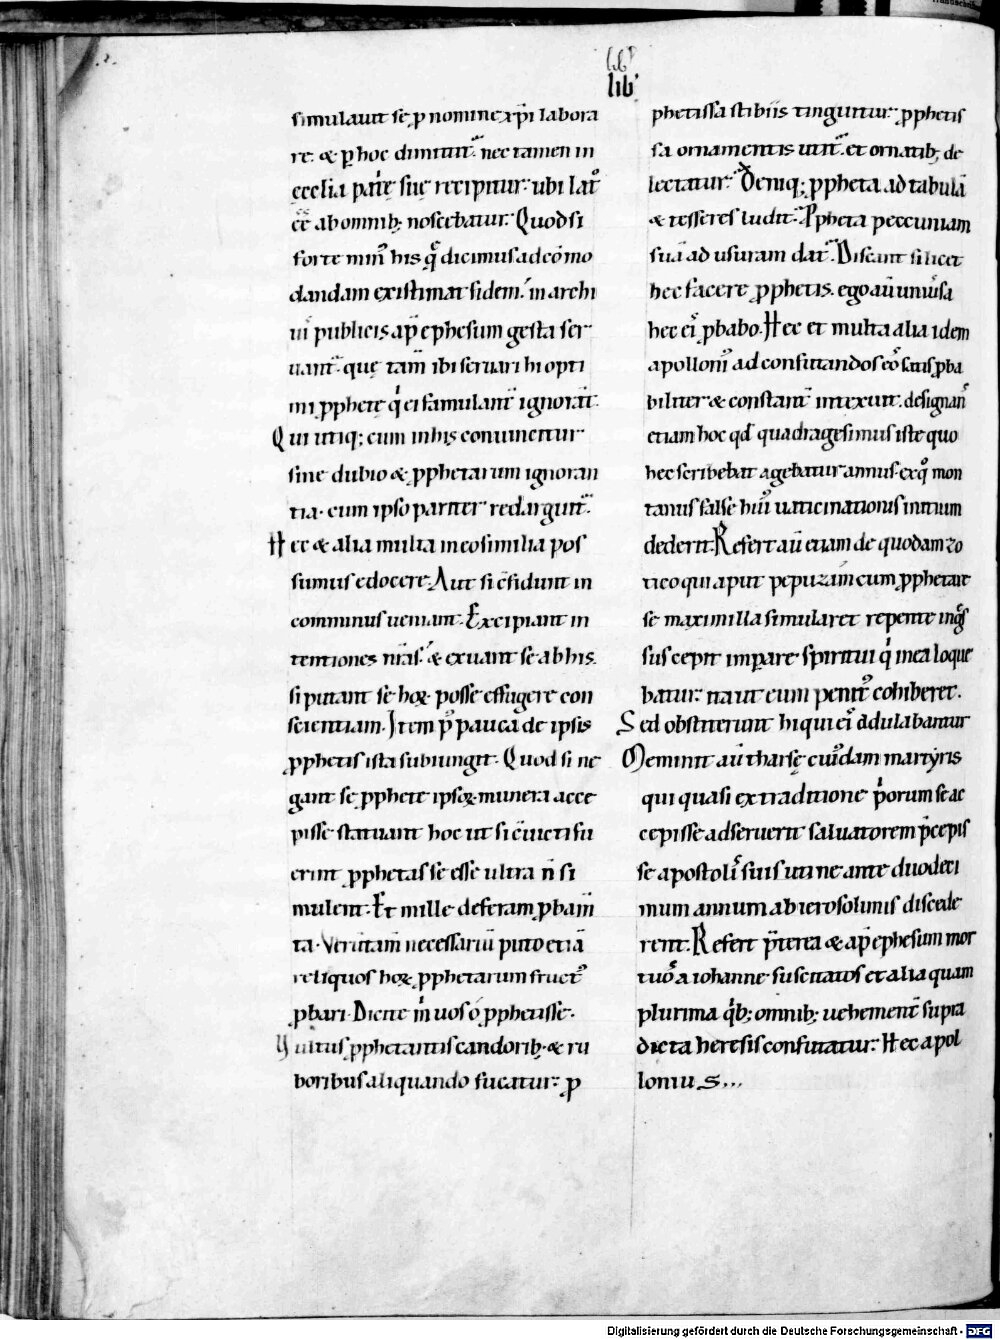 lib'
lib'
simulavit se p̱ nomine xp̄i labora
re. & p̱ hoc dimitit̄. nec tamen in
ecclīa patrię suę recipitur. ubi lat᷒
eē ab omnib; noscebatur. Quod si
forte min᷒ his q̄ dicimus ad cōmo
dandam existimat fidem. in archi
uis publicis ap̄ ephesum gesta ser
uant̄. que tam̄ ibi seruari hi opti
mi p̱phete q¹ ei famulant̄ ignorāt.
Qui utiq; cum in his conuincitur
sine dubio & p̱phetarum ignoran
tia. cum ipso pariter redarguit̄.
Hec & alia multa in eo similia pos
sumus edocere. Aut si cōfidunt in
comminus ueniant. Excipiant in
tentiones nrās. & exuant se ab his.
si putant se hoꝝ posse effugere con
scientiam. Item p᷒ pauca de ipsis
p̱phetis ista subiungit. Quod si ne
gant se p̱phete ipsoꝝ munera acce
pisse statuant hoc ut si cōuicti fu
erint p̱phetas se esse ultra n̄ si
mulent. Et mille deferam p̱bam̄
ta. Veruntam̄ necessariū puto etiā
reliquos hoꝝ p̱phetarum fruct᷒
p̱bari. Dicite m¹ uos o p̱phetisse.
Vultus p̱phetantis candorib; & ru
boribus aliquando fucatur. p̱
phetissa stibiis tinguitur. p̱phetis
sa ornamentis utit̄. et ornatib; de
lectatur. Deniq; p̱pheta ad tabulā
& tesseres ludit. P̱pheta peccuniam
suā ad usuram dat. Discant si licet
hec facere p̱phetis. ego aū uniūsa
hec ei᷒ p̱babo. Hec et multa alia idem
apolloni᷒ ad confutandos eos satis p̱ba
biliter & constant̄ intexuit. designan᷒
etiam hoc qd̄ quadragesimus iste quo
hec scribebat agebatur annus ex q᷒ mon
tanus false hui᷒ uaticinationis initium
dederit. Refert aū etiam de quodam zo
tico qui aput pepuzam cum p̱phetare
se maximilla simularet repente ing̃s
sus cepit imp̱are spiritui q¹ in ea loque
batur. na ut eum penit᷒ cohiberet.
Sed obstiterunt hi qui ei᷒ adulabantur
Meminit aū tharsę cuiusdam martyris
qui quasi ex traditione p¹orum se ac
cepisse adseruerit saluatorem p̄cepis
se apostolis suis uti ne ante duodeci
mum annum ab ierosolimis discede
rent. Refert p̄terea & ap̄ ephesum mor
tuō a iohanne suscitatōs et alia quam
plurima q¹b; omnib; uehement̄ supra
dicta heresis confutatur. Hec apol
lonius...
Digitalisierung gefördert durch die Deutsche Forschungsgemeinschaft - DFG